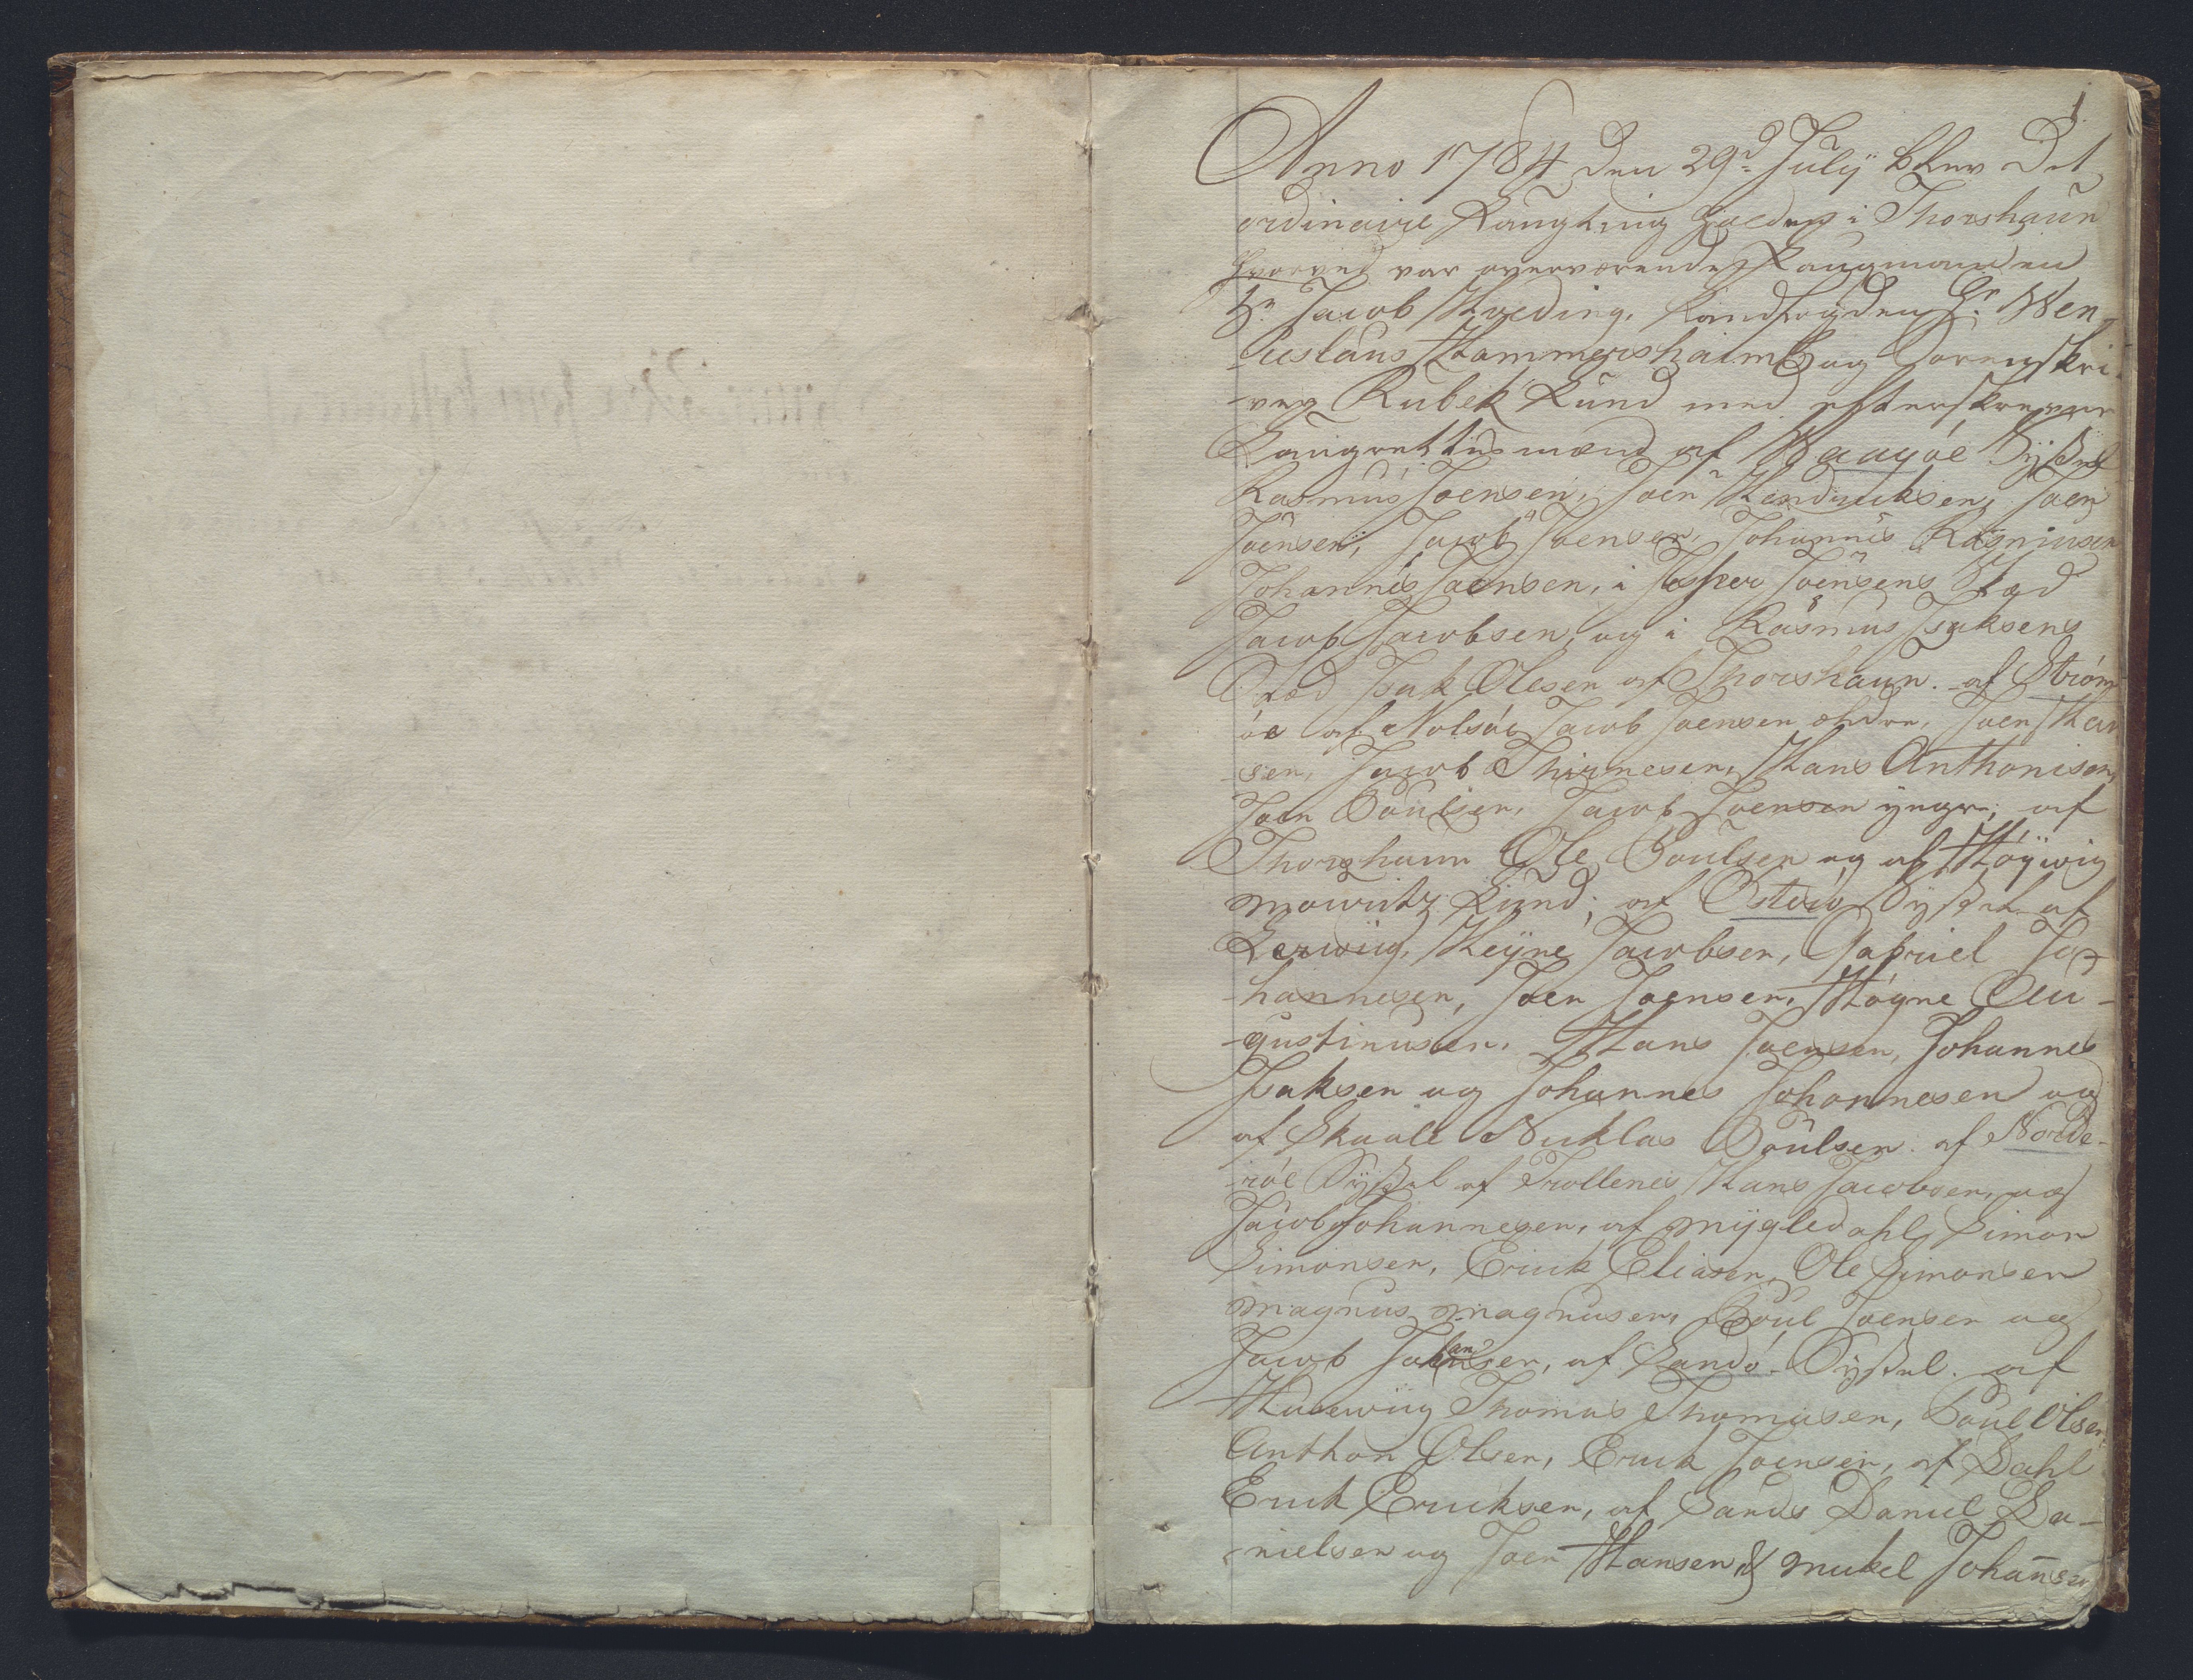 1
Anno 1784 den 29d July blev Det
ordinaire Laugting holdet i Thorshaun
hvorved var overværende Laugmanden
Hr Jacob Hveding, Landfogden Hr Wen-
-ceslaus Hammershaimb og Sorenskri-
-ver Rubek Lund med efterskrevne
Laugrettesmænd af Waagöe Sÿßel
Rasmus Joensen, Joen Hendricksen, Joen
Joensen, Jacob Joensen, Johannes Rasmusen
Johannes Joensen, i Jesper Joensens Stæd
Jacob Jacobsen, og i Rasmus Isaksens
Stæd Isak Olesen af Thorshaun. af Ström
öe af Nolsöe Jacob Joensen ældre, Joen Han
-sen, Jacob Thimesen, Hans Anthonisen,
Joen Poulsen, Jacob Joensen yngre, af
Thorshaun Ole Poulsen og af Höÿwig
Mouritz Lund; af Osterö Sÿßel af
Lerwiig, Heÿne Jacobsen, Gabriel Jo-
-hannesen, Joen Joensen, Högne Au-
-gustinusen, Hans Joensen, Johannes
Isaksen og Johannes Johannesen og
af Skaale Nicklas Poulsen. af Norde-
-röe Sÿßel af Trollenes Hans Jacobsen, og
Jacob Johannesen, af Mÿgledahl Simon
Simonsen, Erick Eliasen, Ole Simonsen
Magnus Magnusen, Poul Joensen og
Jacob Johansen, af Sandö-Sÿßel. af
Husewiig Thomas Thomasen, Poul Olsen
Anthon Olsen, Erick Joensen, af Dahl
Erick Ericksen, af Sands Daniel Da-
-nielsen og Joen Hansen & Mickel Johansen